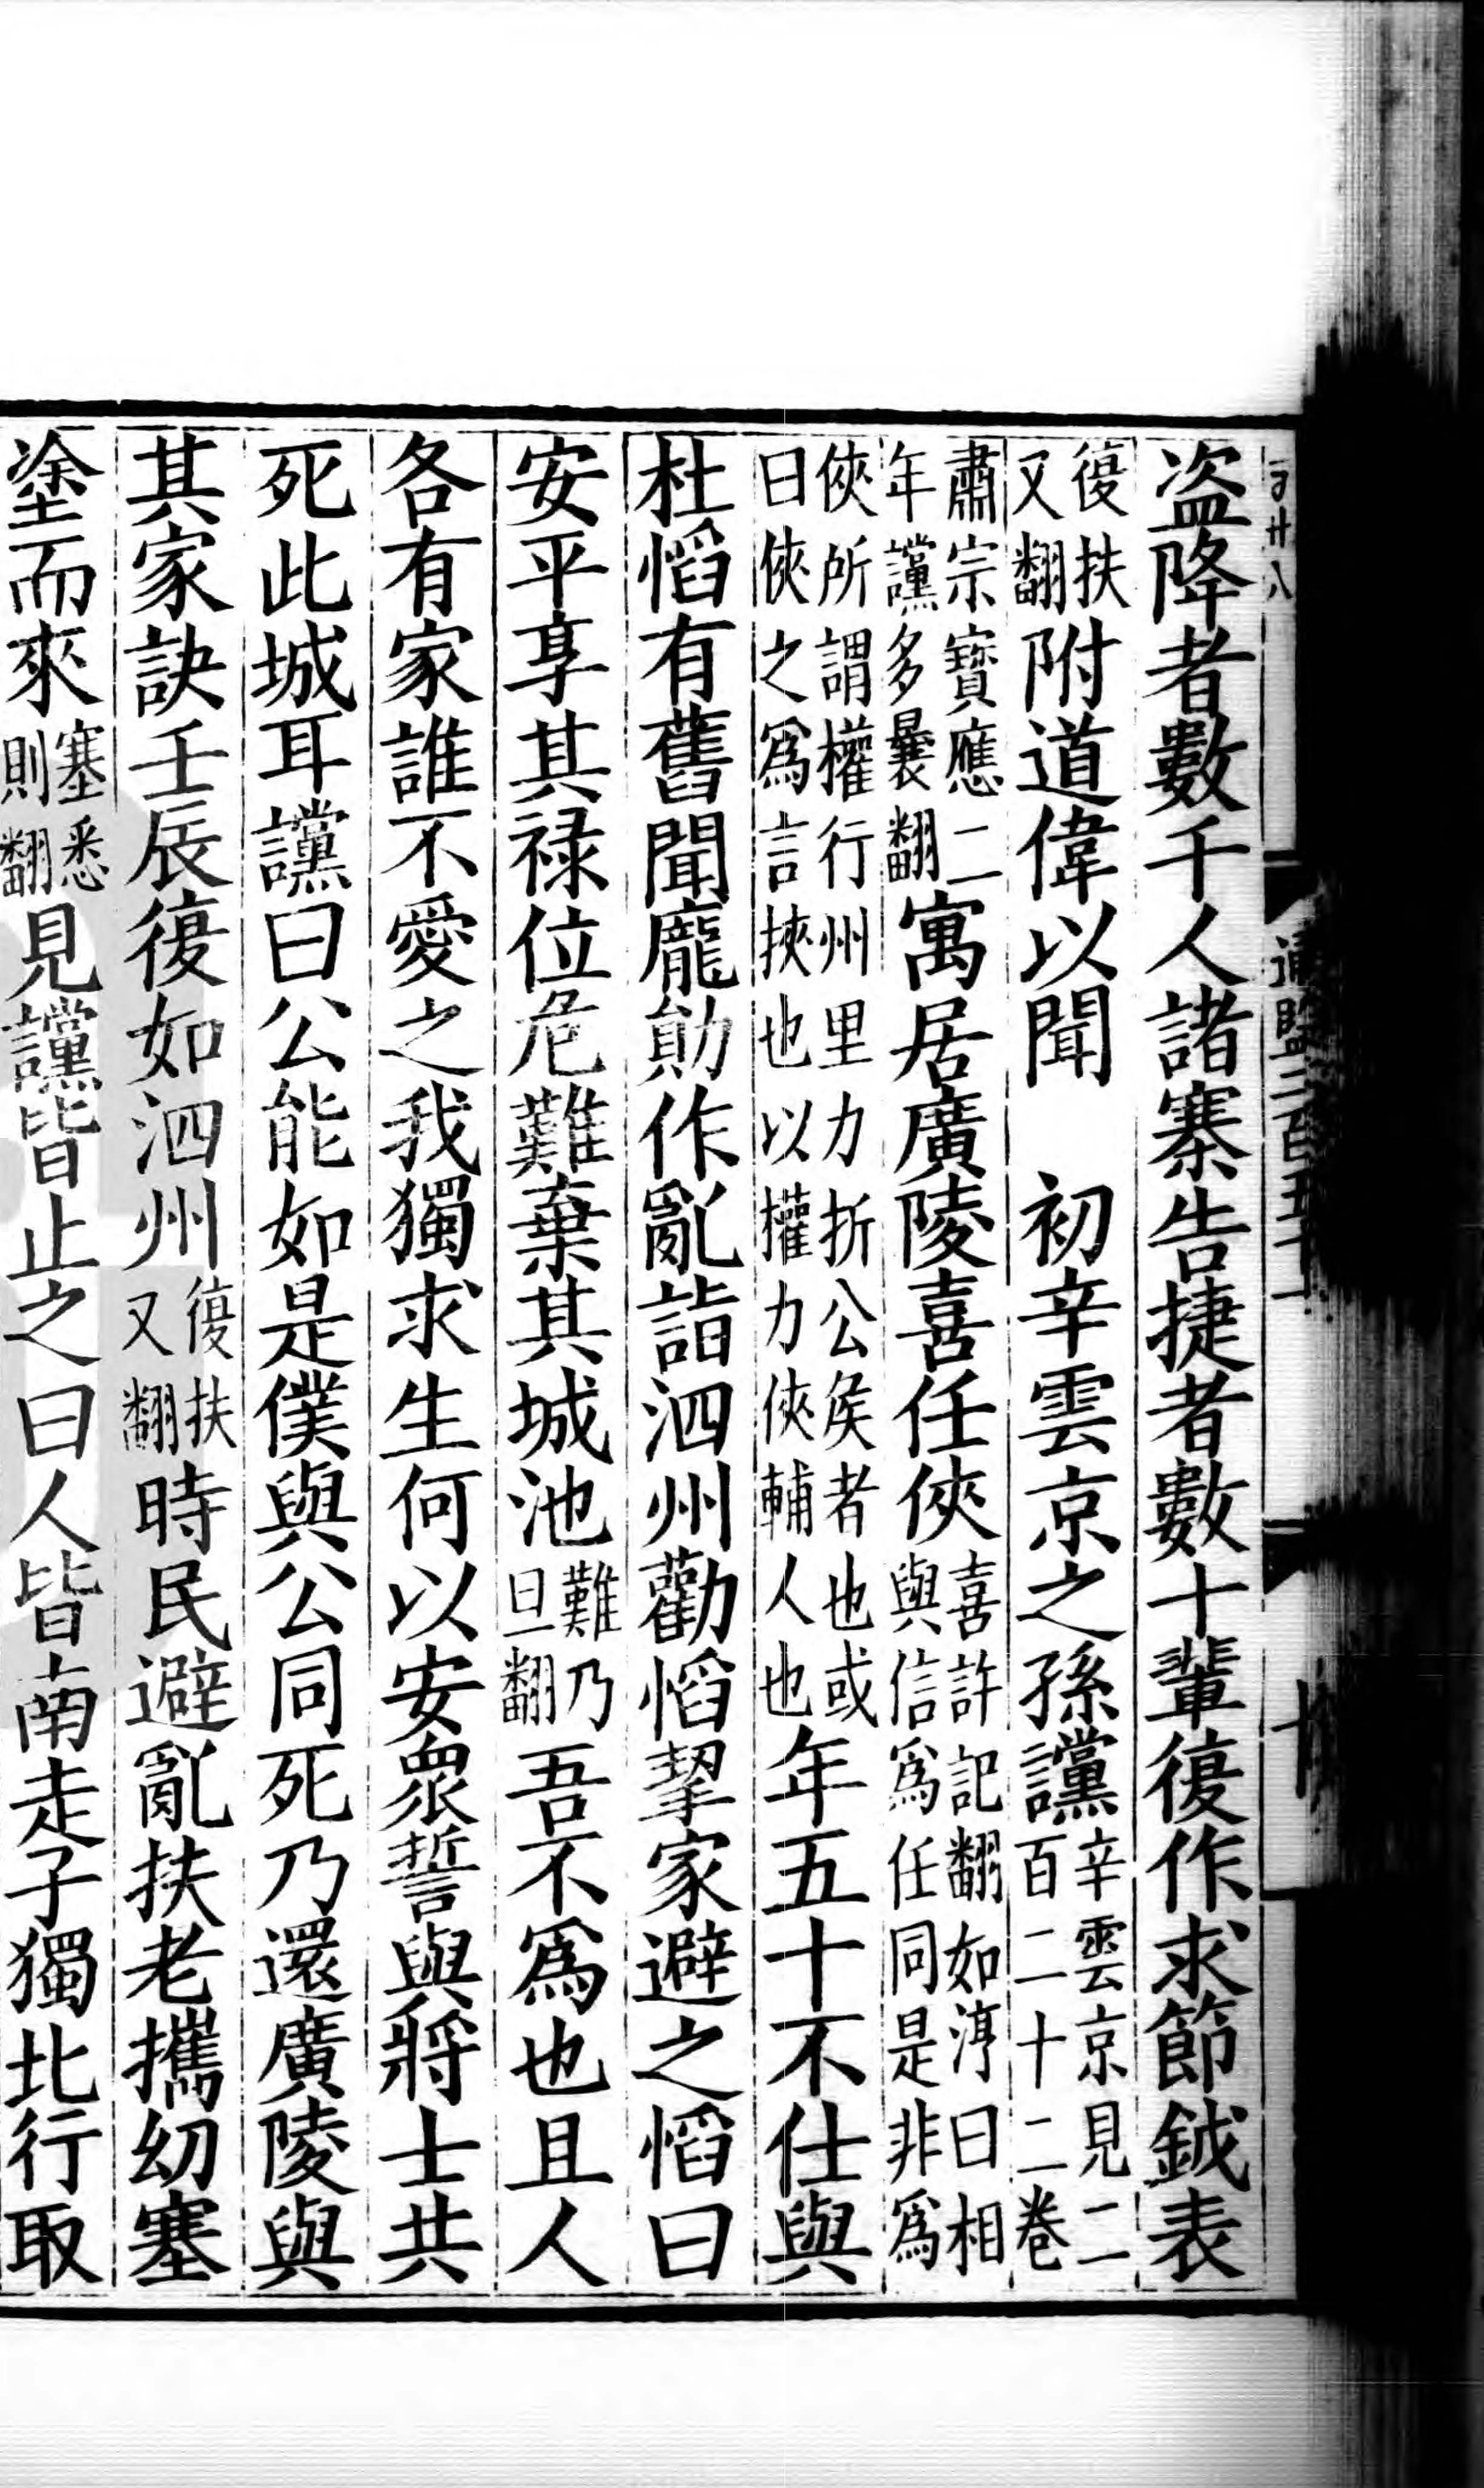 盗降者數千人諸寨告捷者數十輩復作求節鉞表
復扶又翻附道偉以聞　初辛雲京之孫讜辛雲京見二百二十二卷
肅宗寳應二年讜多曩翻寓居廣陵喜任俠喜許記翻如淳曰相與信爲任同是非爲
俠所謂權行州里力折公侯者也或曰俠之爲言挾也以權力俠輔人也年五十不仕與
杜慆有舊聞龐勛作亂詣泗州勸慆挈家避之慆曰
安平享其禄位危難棄其城池難乃旦翻吾不爲也且人
各有家誰不愛之我獨求生何以安衆誓與將士共
死此城耳讜曰公能如是僕與公同死乃還廣陵與
其家訣壬辰復如泗州復扶又翻時民避亂扶老攜幼塞
塗而來塞悉則翻見讜皆止之曰人皆南走子獨北行取